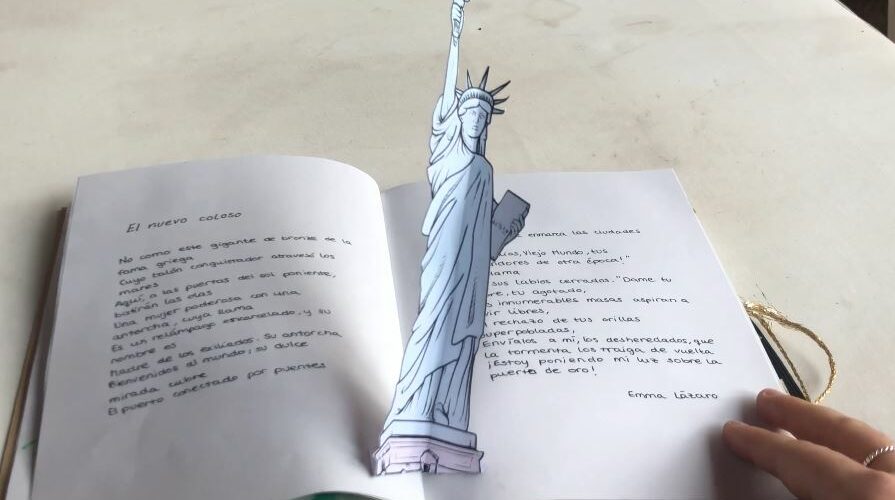 El nuevo coloso
No como este gigante de bronze de la
fama griega
Cuyo talón conquistador atravesó los
mares
Aquí, a las puertas del sol poniente,
batirán las olas
Una mujer poderosa con una
antorcha, cuya llama
Es un relámpago encarcelado, y su
nombre es
Madre de los exiliados. Su antorcha
Bienvenidos al mundo; su dulce
mirada cubre
El puerto conectado por puentes
enmarca las ciudades
Viejo Mundo, tus
de otra época!"
sus labios cerrados. "Dame tu
tu agotado,
innumerables masas aspiran a
libres,
rechazo de tus orillas
superpobladas,
Envíalos a mí, los desheredados, que
la tormenta los traiga de vuelta
¡Estoy poniendo mi luz sobre la
puerta de oro!
Emma Lázaro